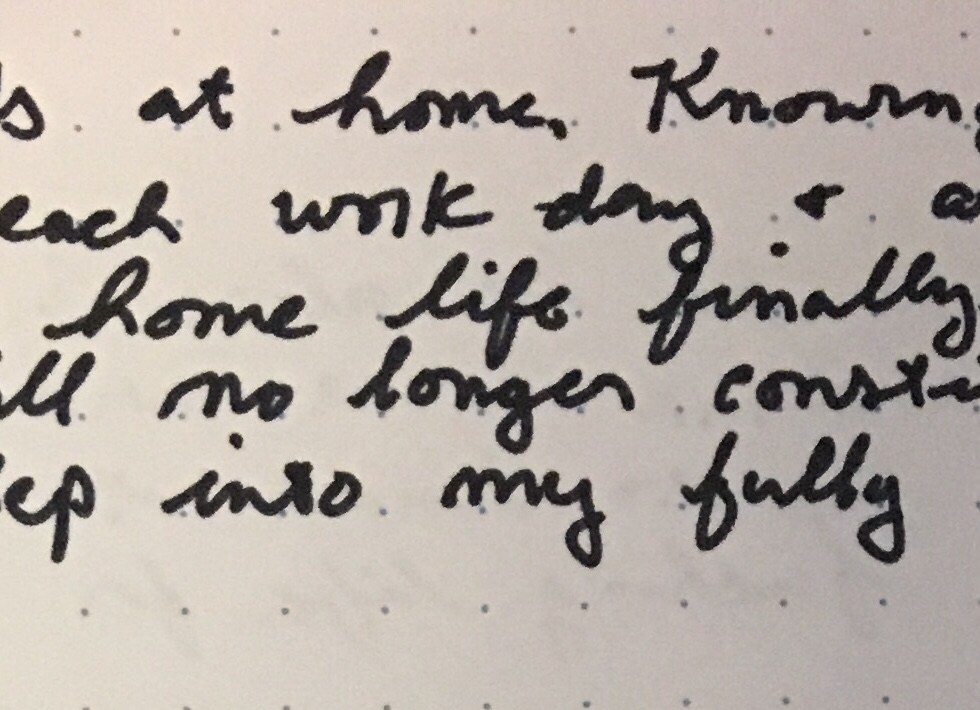 at home. Knowing
each work day +
home life finally
no longer
into my fully